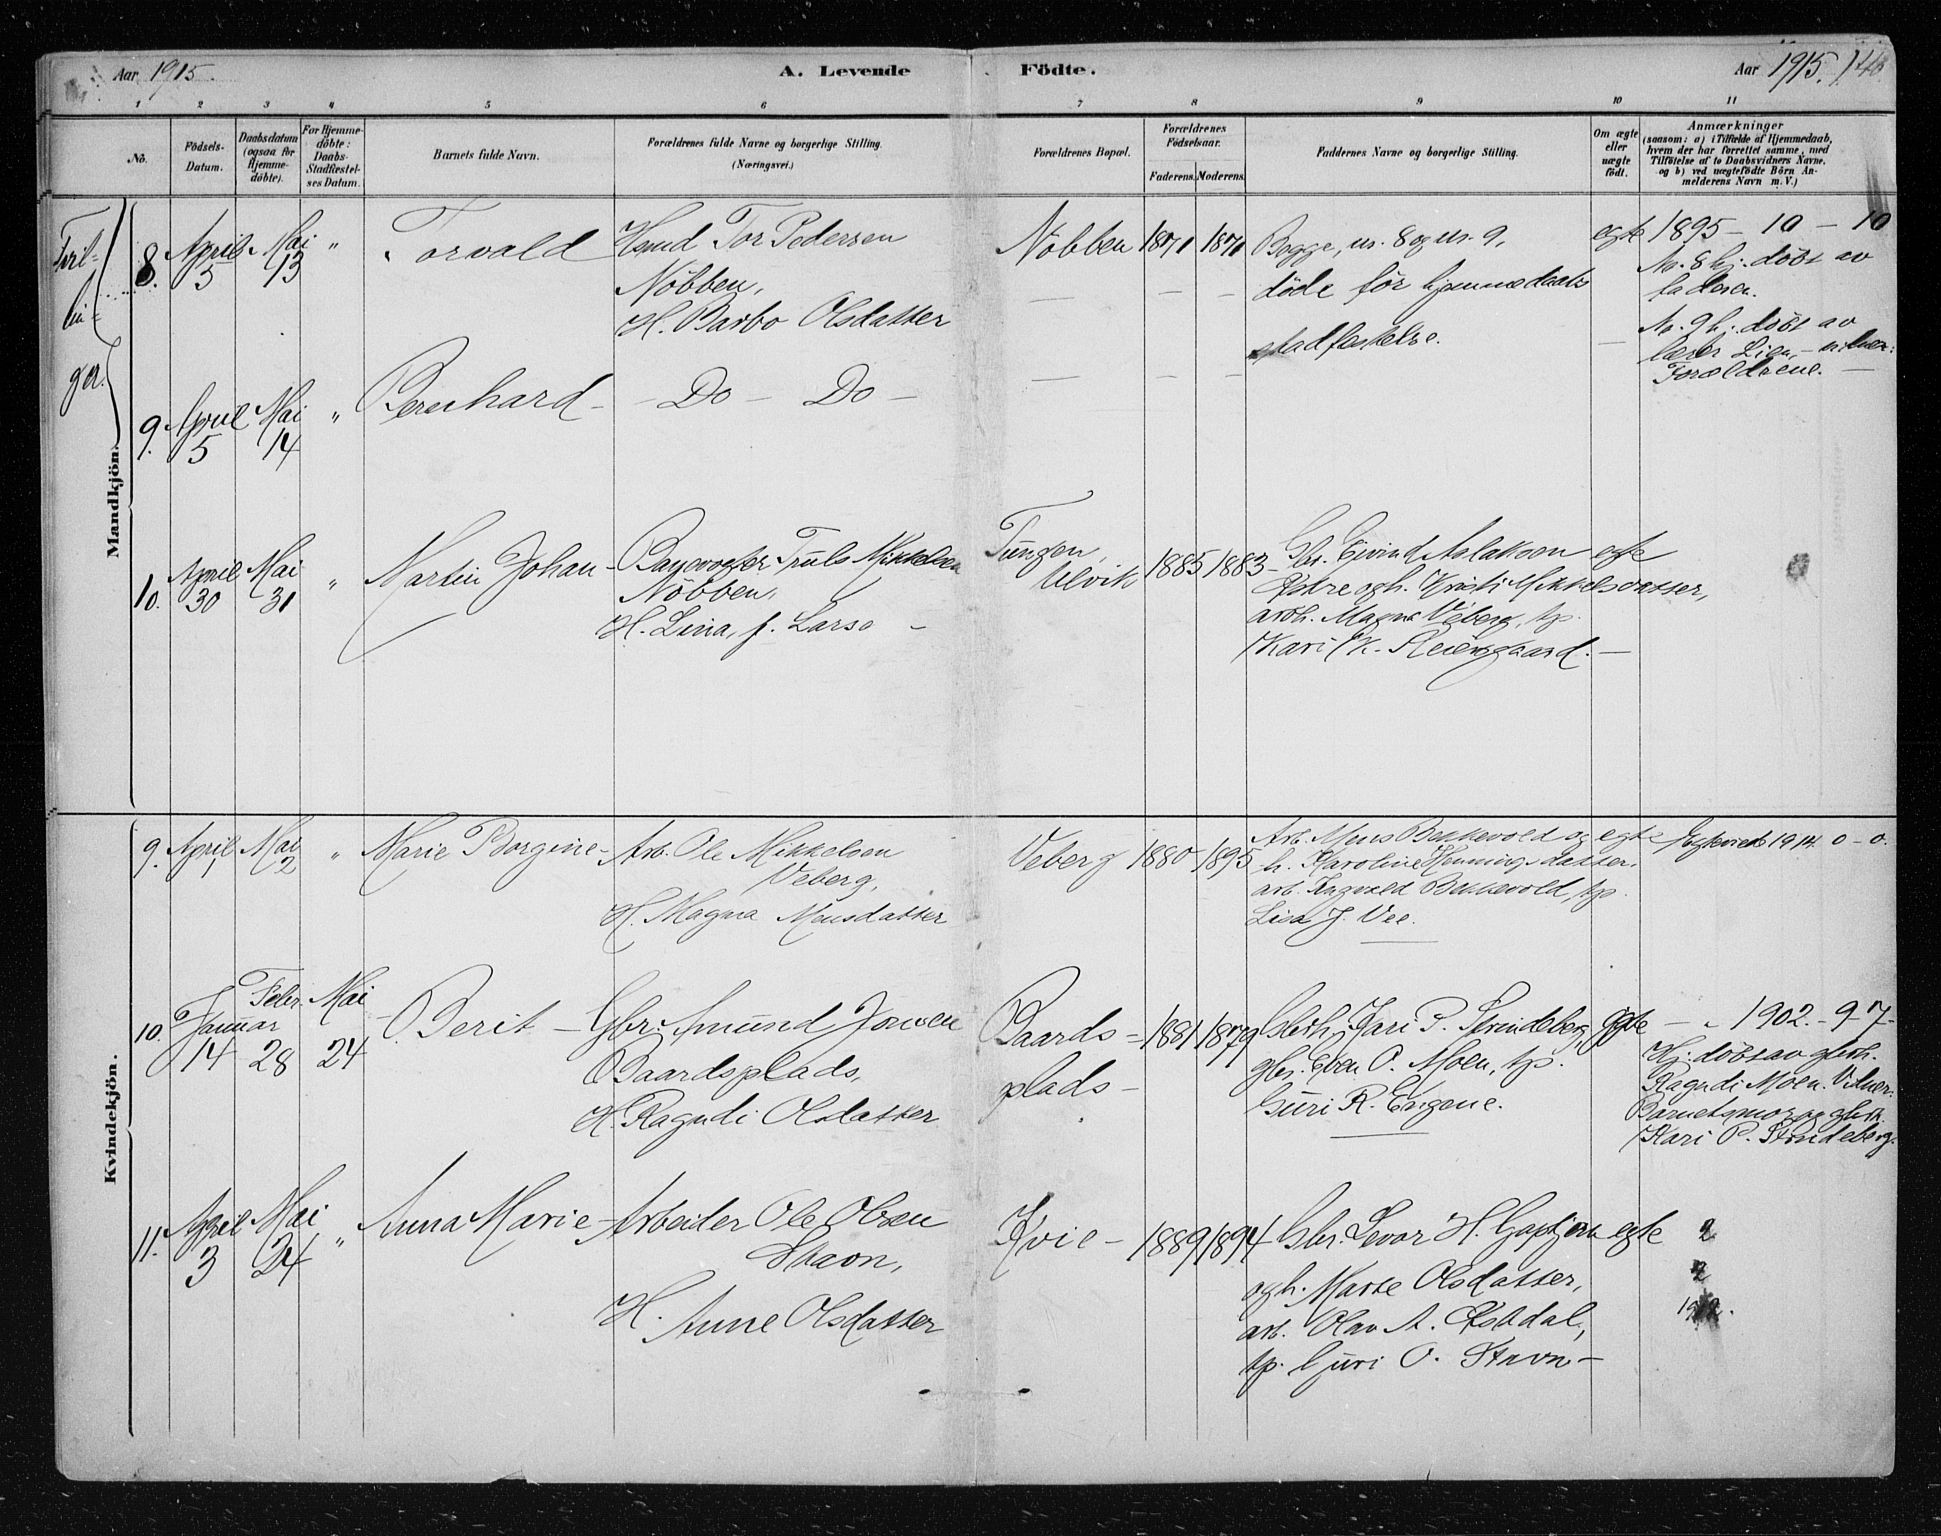 Aar 1915.
A. Levende
Födte.
Aar 1915.
1 2 3 4 5 6 7 8 9 10 11
No.
Födsels-
Datum.
Daabsdatum
(ogsaa for
Hjemme-
döbte).
For Hjemme-
döbte:
Daabs-
Stadfæstel-
ses Datum.
Barnets fulde Navn.
Forældrenes fulde Navne og borgerlige Stilling.
(Næringsvei.)
Forældrenes Bopæl.
Forældrenes
Födselsaar.
Faderens. Moderens.
Faddernes Navne og borgerlige Stilling.
Om ægte
eller
uægte
födt.
Anmærkninger
(saasom: a) i Tilfælde af Hjemmedaab,
hvem der har forrettet samme, med
Tilföielse af to Daabsvidners Navne,
og b) ved uægtefödte Börn An-
melderens Navn m. V.)
Mandkjön.
8. April 5 Mai 13 " Torvald
Tor Pedersen
Nöbben,
H. Barbo Olsdatter
Nöbben 1871 1871
Begge, nr. 8 og nr. 9,
döde för hjemmedaabs
stadfestelse.
egte 1895 - 10 - 10
No. 8 hj. döbt av
faderen.
No. 9 hj. döbt av
lærer Lien, -
Forældrene. -
9. April 5 Mai 14 " Bernhard - - Do - Do -
10. April 30 Mai 31 " Martin Johan -
Banevogter Truls Mikkelsen
Nöbben,
H. Lina, f. Larsa -
Tungen,
Ulvik 1885 1883
Gbr. Eivind Aslaksen
og h. Kristi Mikkelsdatter,
arb. Magne Veberg, tp.
Kari K. -
egte
Kvindekjön.
9. April 1 Mai 2 " Marie Borgine -
Arb. Ole Mikkelsen
Veberg,
H. Magna Monsdatter
Veberg 1880 1895
Arb. Mons Bekkevold og
h. Karoline Henningsdatter.
arb. Ingvald Bekkevold, tp.
Lisa J. Vee.
egte 1914. 0 - 0.
10. Januar 14 Febr. 28 Mai 24 Berit -
Gbr. Amund Jonsen
Baardsplads,
H. Ragndi Olsdatter
Baards -
plads - 1881 1879
Gbrh. Kari P. Strindeberg,
gbr. Even O. Moen, tp.
Guri R. Engene.
egte 1902. - 9 - 7 -
Hj. döbt av gbrh.
Ragndi Moen. Vidner:
Barnets mor og gbrh.
Kari P. Strindeberg.
11. April 3 Mai 24 " Anna Marie -
Arbeider Ole Olsen
Stavn,
H. Anne Olsdatter
Kvie - 1889 1894
Gbr. Levor H.
og h. Marte Olsdatter,
arb. Olav A.
tp. Guri O. Stavn -
egte 2
2